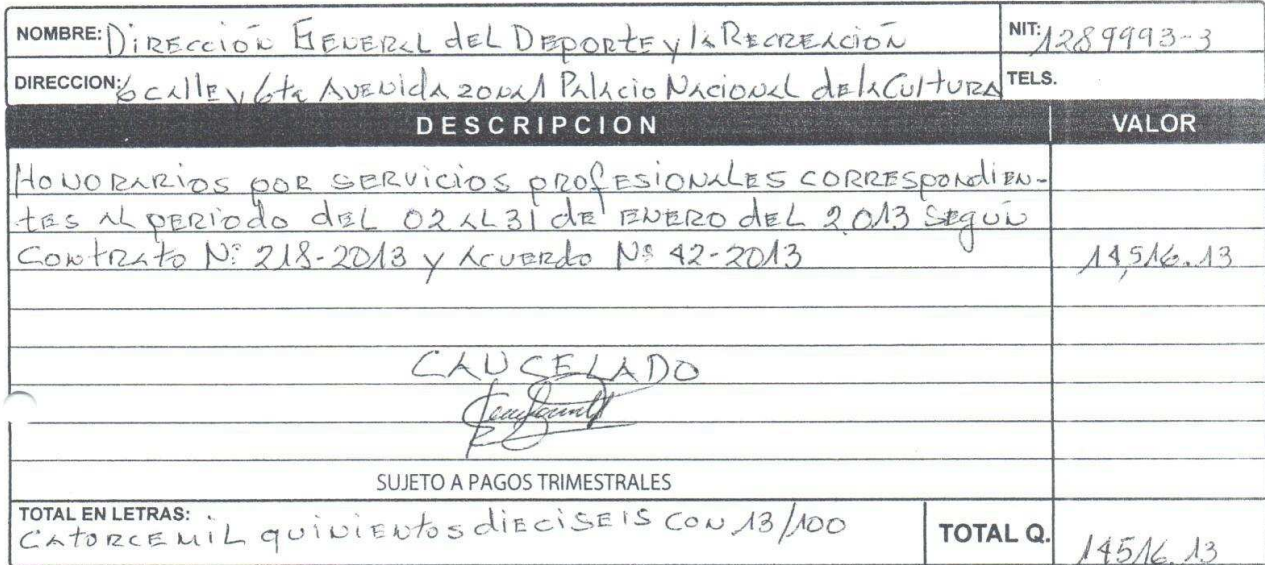 NOMBRE: Dirección General del Deporte y la Recreación NIT: 1289993-3
DIRECCION: 6 calle y 6ta Avenida zona 1 Palacio Nacional de la Cultura TELS.
DESCRIPCION VALOR
Honorarios por servicios profesionales correspondien-
tes al periodo del 02 al 31 de enero del 2,013 según
Contrato Nº 218-2013 y Acuerdo Nº 42-2013 14,516.13
CANCELADO
SUJETO A PAGOS TRIMESTRALES
TOTAL EN LETRAS:
Catorce mil quinientos dieciseis con 13/100 TOTAL Q. 14516.13